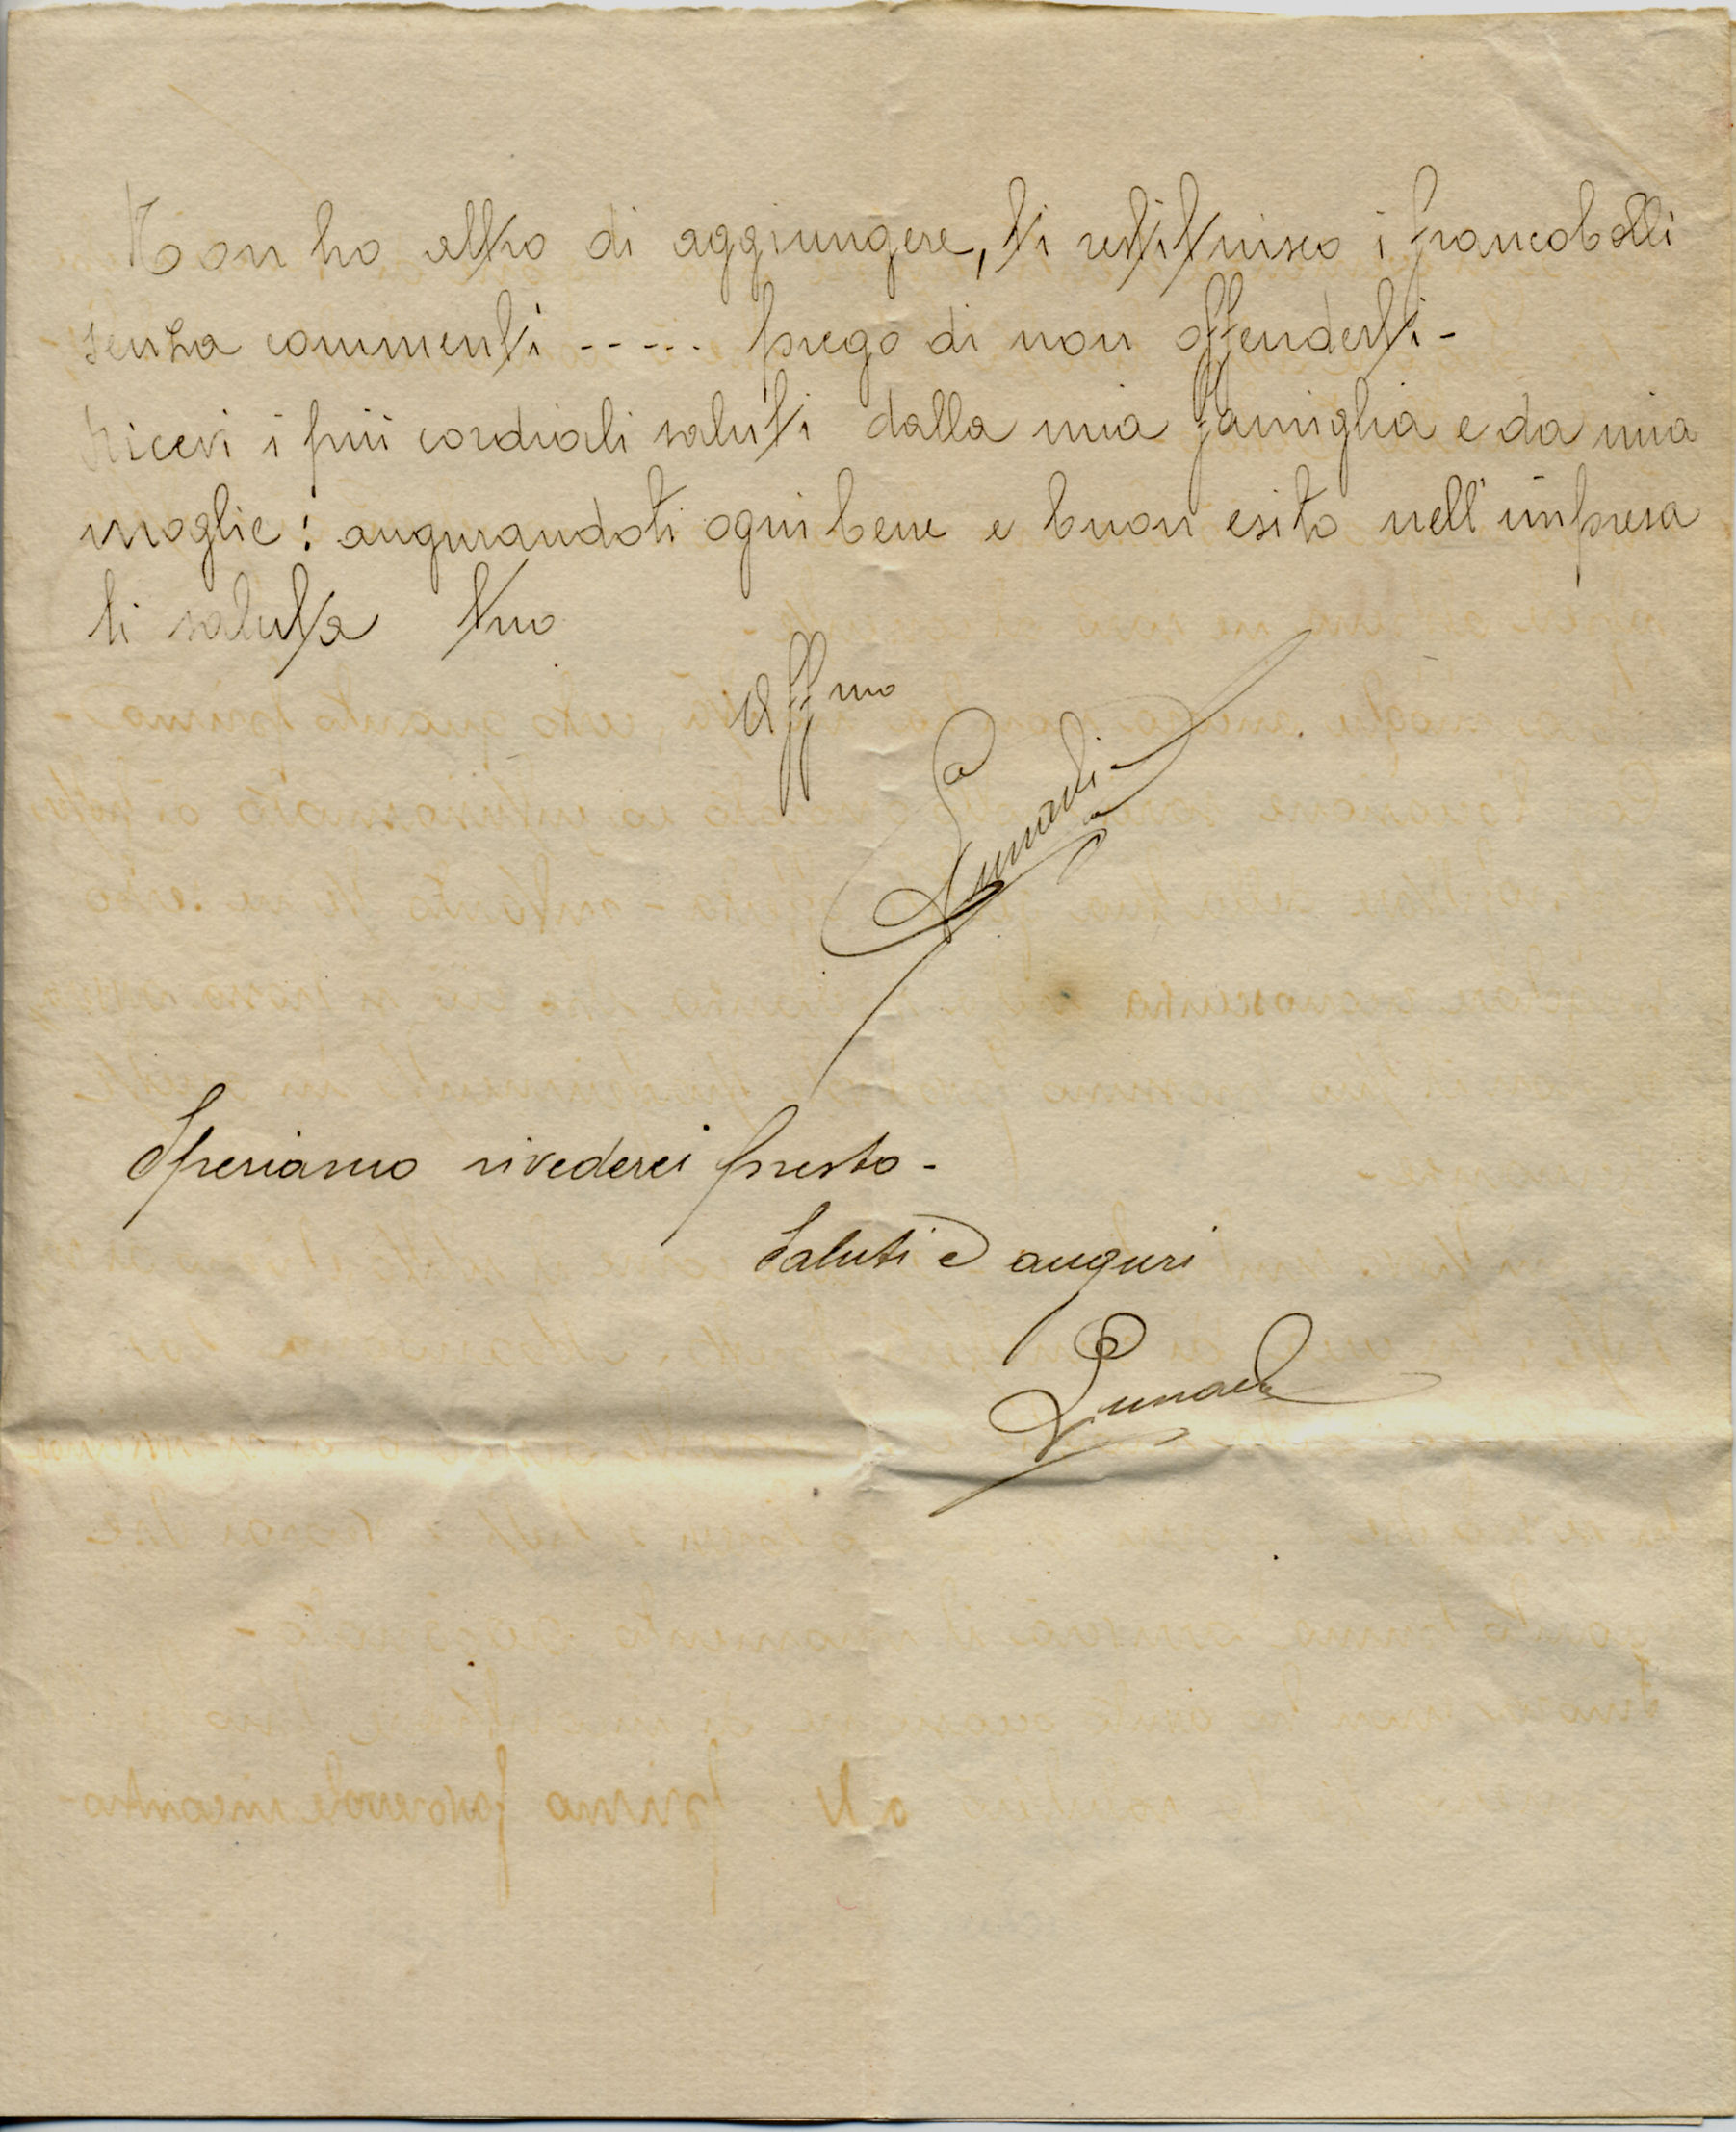 Non ho altro di aggiungere, ti restituisco i francobolli
senza commenti ----.. prego di non offenderti -
Ricevi i più cordiali saluti dalla mia famiglia e da mia
moglie: augurandoti ogni bene e buon esito nell'impresa
ti saluta tuo
Affmo
Speriamo rivederci presto -
Saluti e auguri